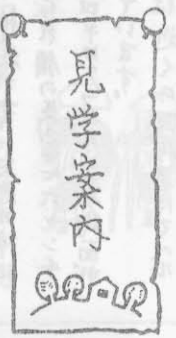 見学案内